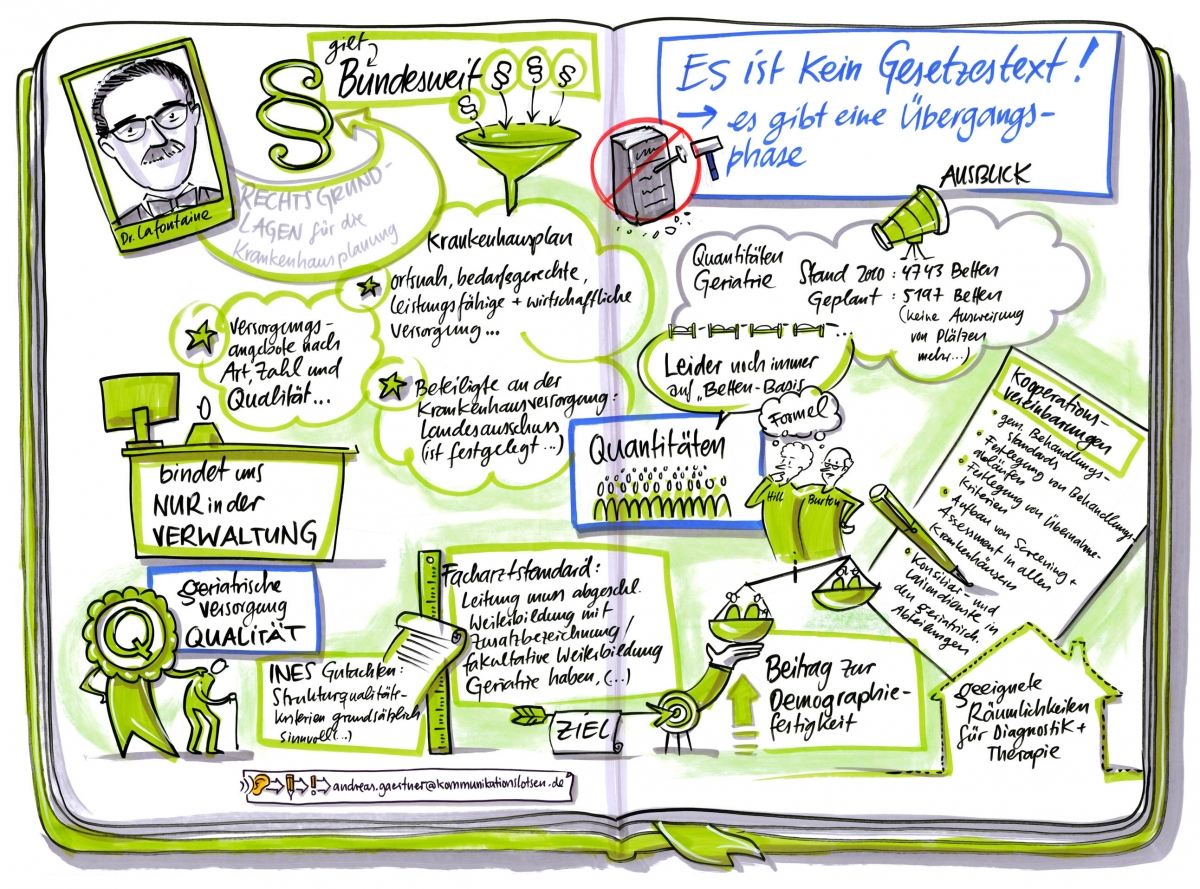 Dr. Lafontaine
§
gilt
Bundesweit
§ § § §
RECHTSGRUND-
LAGEN für die
Krankenhausplanung
Krankenhausplan
ortsnah, bedarfsgerechte,
leistungsfähige + wirtschaftliche
Versorgung...
Versorgungs-
angebote nach
Art, Zahl und
Qualität...
Beteiligte an der
Krankenhausversorgung:
Landesausschuss
(ist festgelegt ...)
bindet uns
NUR in der
VERWALTUNG
geriatrische
Versorgung
QUALITÄT
Q
INES Gutachten:
Strukturqualitäts-
kriterien grundsätzlich
sinnvoll (...)
Facharztstandard:
Leitung muss abgeschl.
Weiterbildung mit
Zusatzbezeichnung /
fakultative Weiterbildung
Geriatrie haben, (...)
ZIEL
andreas.gaertner@kommunikationslotsen.de
Es ist kein Gesetzestext!
→ es gibt eine Übergangs-
phase
AUSBLICK
Quantitäten
Geriatrie
Stand 2010 : 4743 Betten
Geplant : 5197 Betten
(keine Ausweisung
von Plätzen
mehr...)
...
Leider noch immer
auf „Betten-Basis
Quantitäten
Formel
Hill
Burton
Kooperations-
vereinbarungen
• gem. Behandlungs-
standards
• Festlegung von Behandlungs-
abläufen
• Festlegung von Übernahme-
Kriterien
• Aufbau von Screening +
Assessment in allen
Krankenhäusern
• Konsiliar- und
Liaisondienste in
den geriatrisch.
Abteilungen
Beitrag zur
Demographie-
festigkeit
geeignete
Räumlichkeiten
für Diagnostik +
Therapie